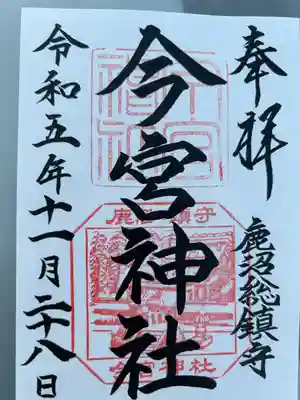 奉拝
鹿沼総鎮守
今宮神社
令和五年十一月二十八日